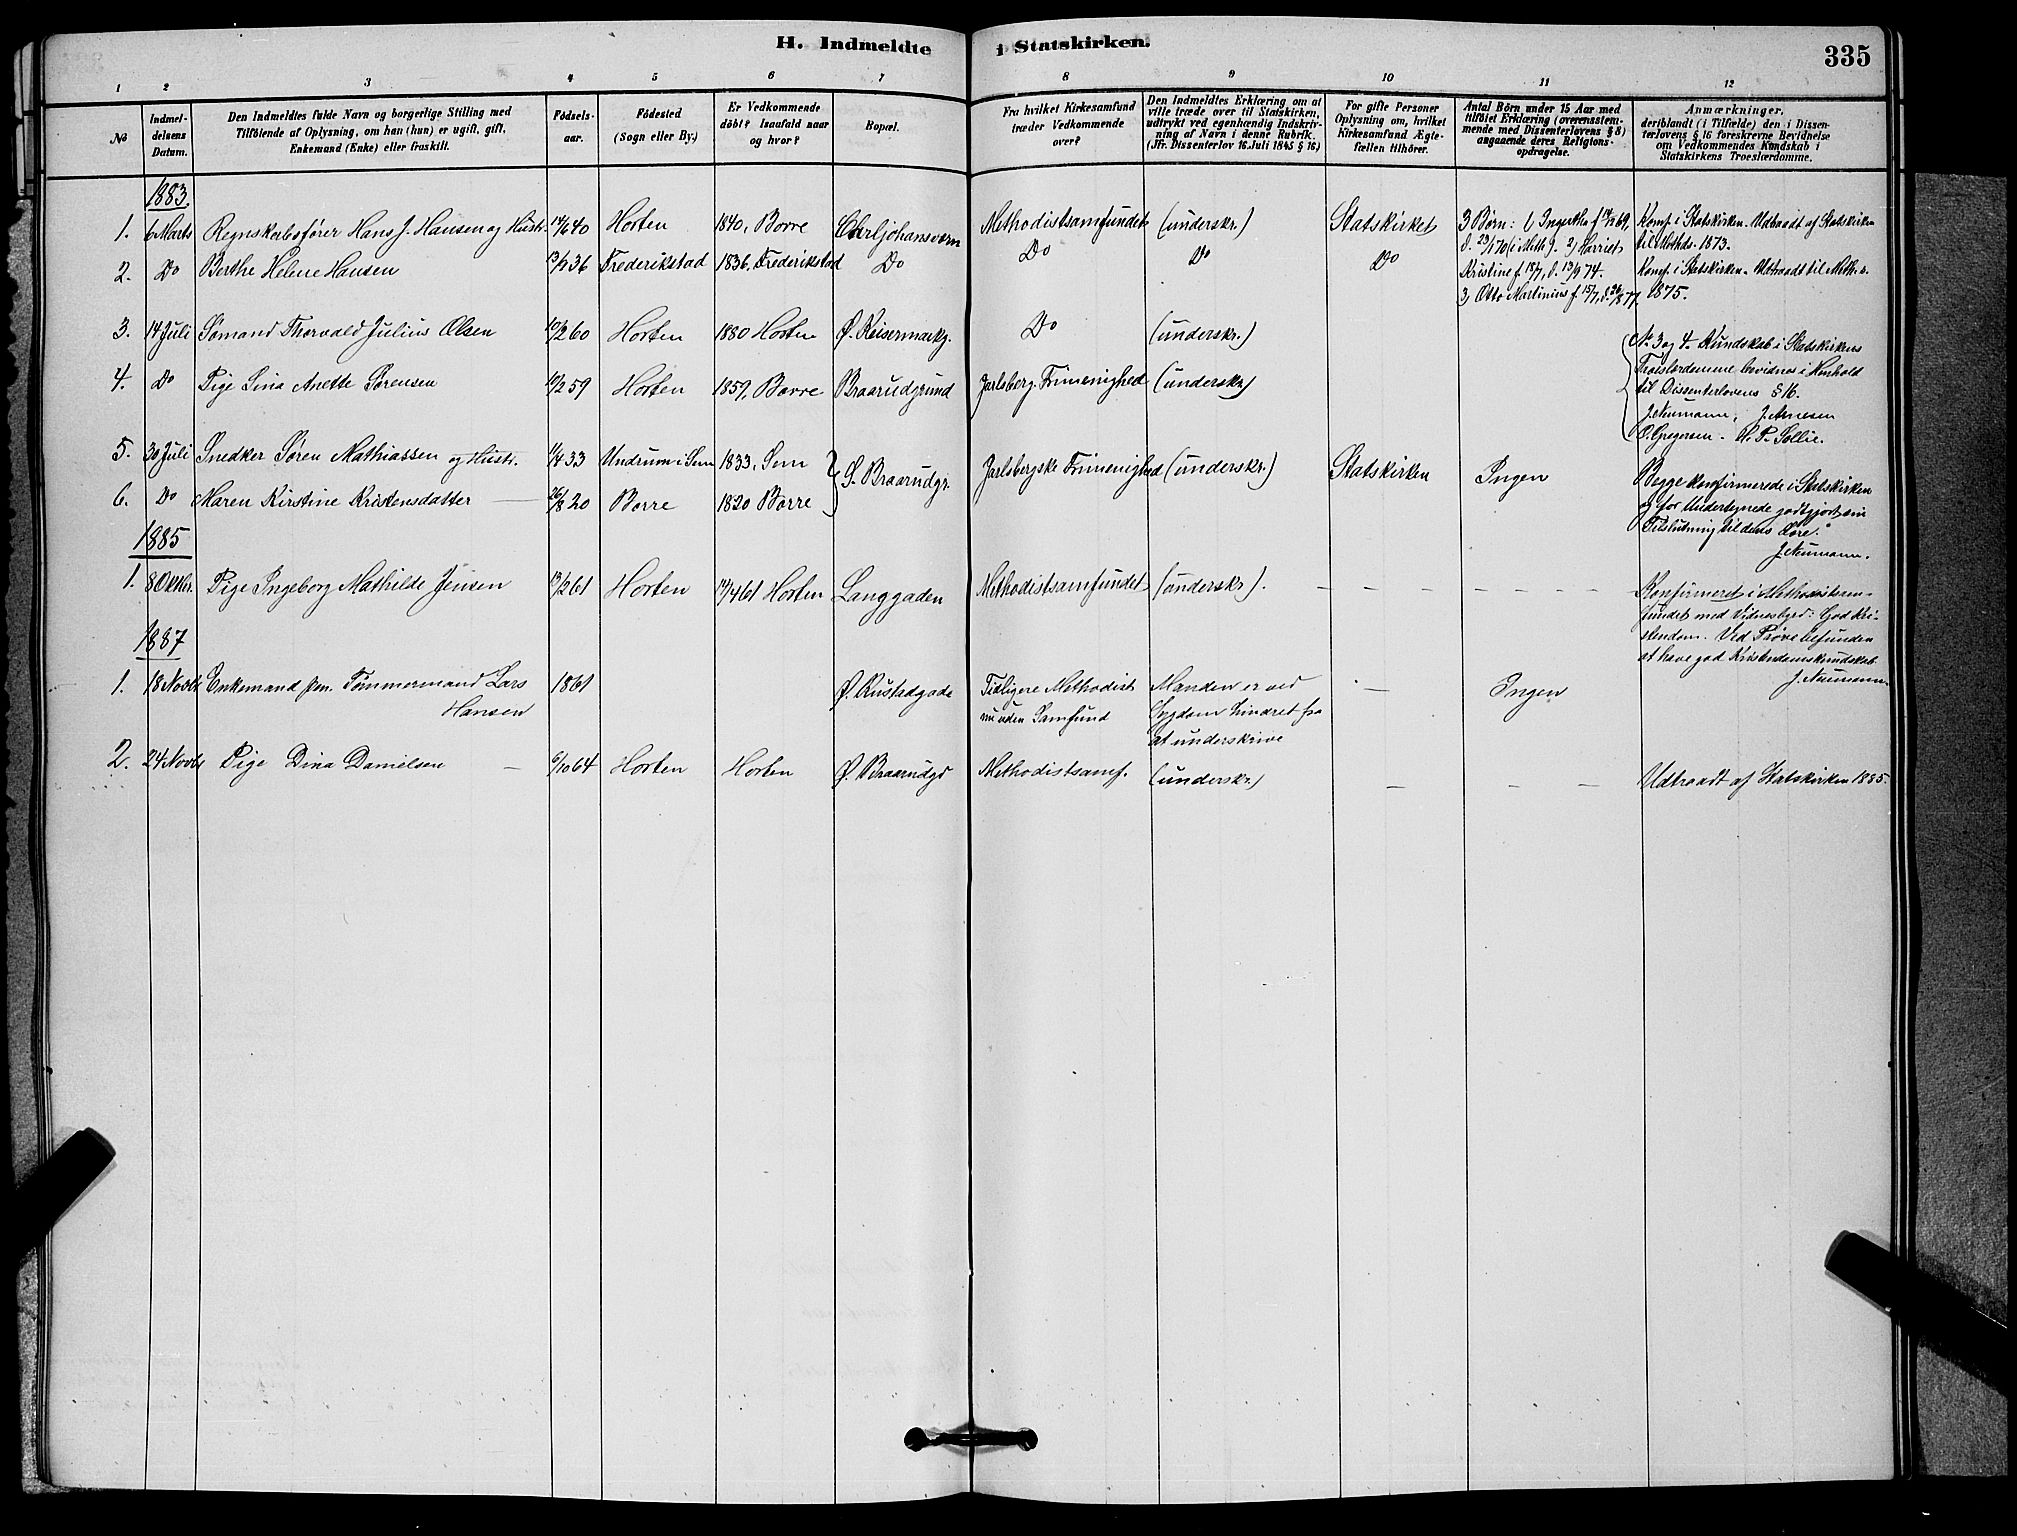 H. Indmeldte i Statskirken.
335
1 2 3 4 5 6 7 8 9 10 11 12
No
Indmel-
delsens
Datum.
Den Indmeldtes fulde Navn og borgerlige Stilling med
Tilföiende af Oplysning, om han (hun) er ugift, gift,
Enkemand (Enke) eller fraskilt.
Födsels-
aar.
Födested
(Sogn eller By.)
Er Vedkommende
döbt? Isaafald naar
og hvor?
Bopæl.
Fra hvilket Kirkesamfund
træder Vedkommende
over?
Den Indmeldtes Erklæring om at
ville træde over til Statskirken,
udtrykt ved egenhændig Indskriv-
ning af Navn i denne Rubrik.
(Jfr. Dissenterlov 16. Juli 1845 § 16.)
For gifte Personer
Oplysning om, hvilket
Kirkesamfund Ægte-
fællen tilhörer.
Antal Börn under 15 Aar med
tilföiet Erklæring (overensstem-
mende med Dissenterlovens § 8)
angaaende deres Religions-
opdragelse.
Anmærkninger,
deriblandt (i Tilfælde) den i Dissen-
terlovens § 16 foreskrevne Bevidnelse
om Vedkommendes Kundskab i
Statskirkens Troeslærdomme.
1883.
1. 6 Marts Regnskabsfører Hans J. Hansen og Hustr. 14/6 40 Horten 1840, Borre Carljohansværn Methodistsamfundet (underskr.) Statskirket
3 Børn: 1) Ingertha f. 69,
d. 29/1 70 (i Meth). 2) Harriet
Kristine f. 18/7, d. 13/9 74.
3, Otto Martinius f. 15/7, d. 26/8 77.
Konf. i Statskirken. Udtraadt af Statskirken
til Methds. 1873.
2. Do Berthe Helene Hansen 13/7 36 Frederikstad 1836, Frederikstad Do Do Do Do
Konf. i Statskirken. Udtraadt til Meth. s.
1875.
3. 14 Juli Sømand Thorvald Julius Olsen 10/2 60 Horten 1880 Horten Ø. Keisermarkg. Do (underskr.)
4. Do Pige Lina Anette Sørensen 10/2 59 Horten 1859, Borre Braarudgrund Jarlsberg. Frimenighed (underskr.)
No 3 og 4. Kundskab i Statskirkens
Troislærdomme bevidnes i Henhold
til Dissenterlovens § 16.
J. Neumann, J. Arnesen
O. Gregersen. H. P. Sollie.
5. 30 Juli Snedker Søren Mathiassen og Hustr. 1/4 33 Undrum i Sem 1833, Sem S. Braarudgr. Jarlsbergske Frimenighed (underskr.) Statskirken Ingen
6. Do Maren Kirstine Kristensdatter 26/8 20 Borre 1820 Borre
Begge konfirmerede i Statskirken
og for Undertegnede godtgjort sin
Tilslutning til dens Lære.
J. Neumann.
1885
1. 8 Oktbr. Pige Ingeborg Mathilde Jensen 13/2 61 Horten 14/4 61 Horten Langgaden Methodistsamfundet (underskr.). — — — — — — —
Konfirmeret i Methodistsam-
fundet med Vidnesbyrd: God Kri-
stendom. Ved Prøve befunden
at have god Kristendomskundskab
J. Neumann.
1887
1. 18 Novbr Enkemand pen. Tømmermand Lars
Hansen
1861 Ø. Rustadgade
Tidligere Methodist
nu uden Samfund
Manden er ved
Sygdom hindret fra
at underskrive
— Ingen
2. 24 Novbr Pige Dina Danielsen — 6/10 64 Horten Horten Ø. Braarudgd Methodistsamf. (underskr.) — — — Udtraadt af Statskirken 1885.